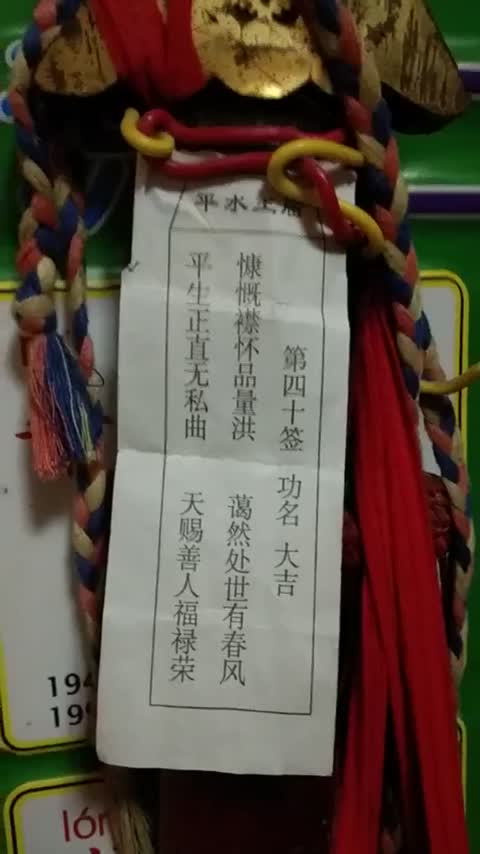 平水王庙
第四十签 功名 大吉
慷慨襟怀品量洪 蔼然处世有春风
平生正直无私曲 天赐善人福禄荣
194
199
lón